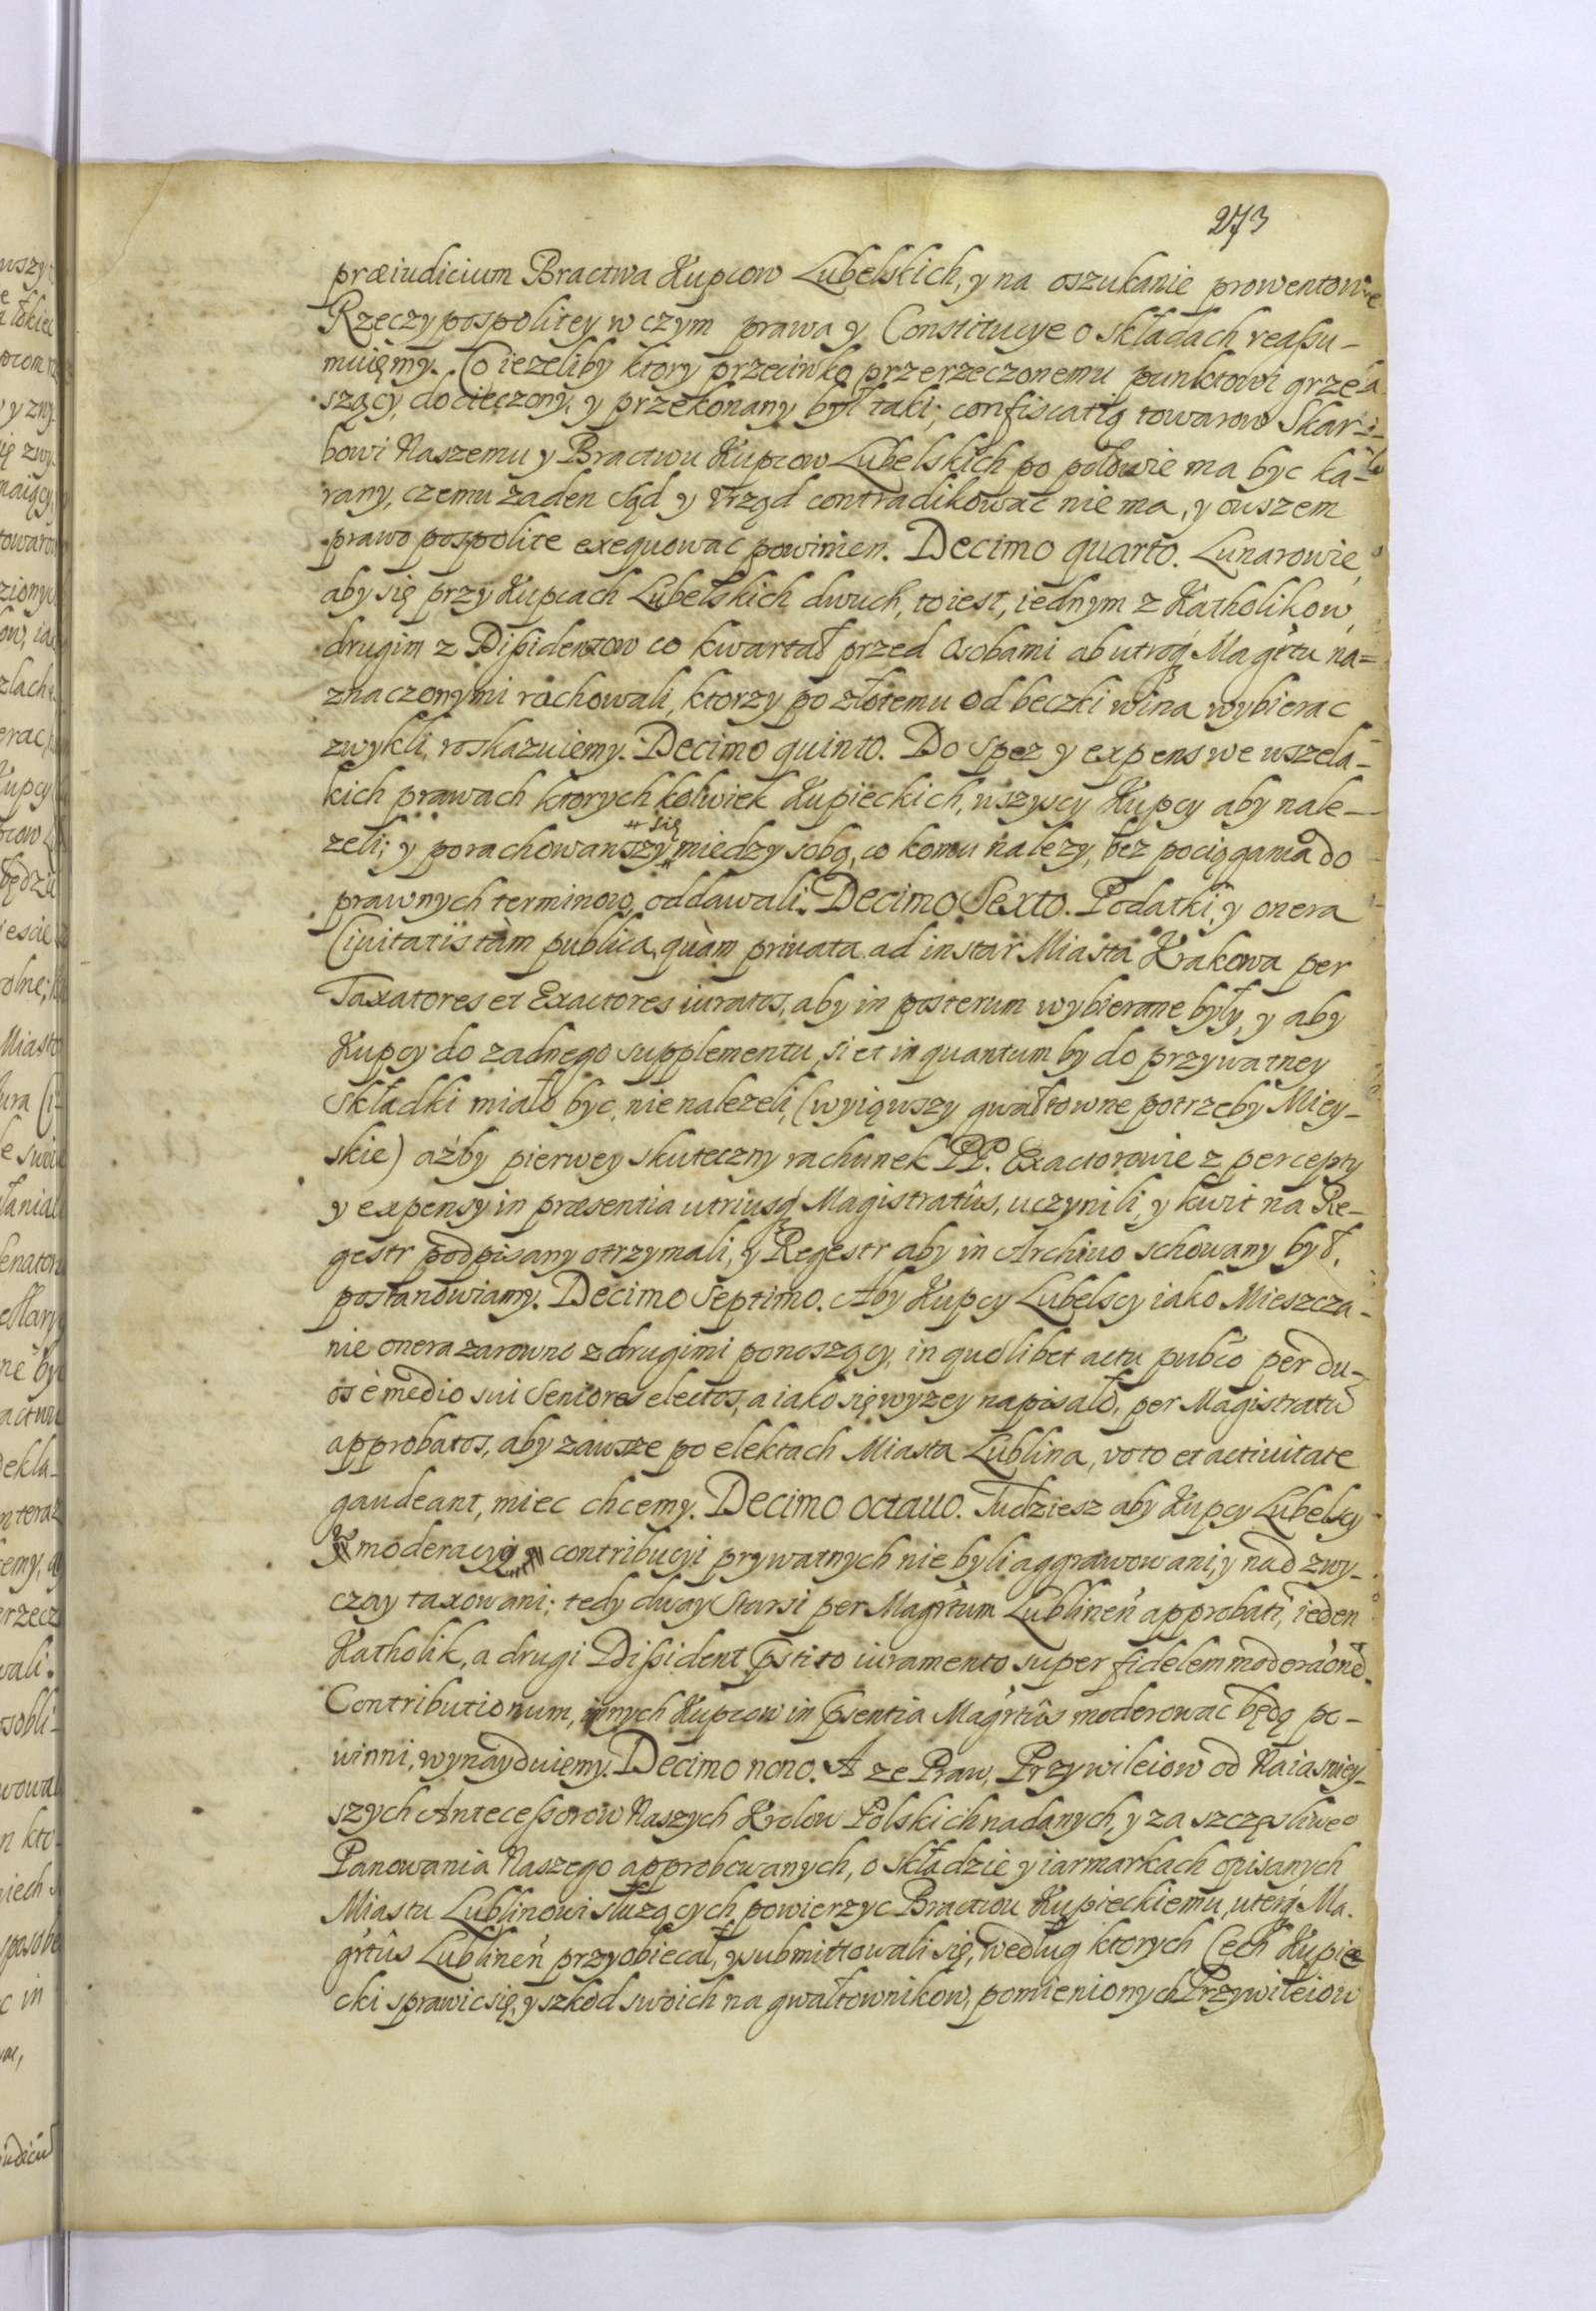 273
præiudicium Bractwa Kupcow Lubelskich, y na oszukanie prowentow
Rzeczypospolitey w czym prawa y Constitucye o składach reassu-
muięmy. Co iezeliby ktory przeciwko przerzeczonemu punktowi grze-
szący, docieczony, y przekonany był taki; confiscatią towarow Skar-
bowi Naszemu y Bractwu Kupcow Lubelskich po połowie ma byc ka-
rany, czemu zaden Sąd y Vrząd contradikowac nie ma, y owszem
prawo pospolite exequowac powinien. Decimo quarto. Lunarowie,
aby się przy Kupcach Lubelskich dwuch, to iest, iednym z Katholikow,
drugim z Dissidentow co kwartał przed Osobami ab utroq́ Magr̃tu na=
znaczonymi rachowali, ktorzy po złotemu od beczki wina wybierac
zwykli, roskazuiemy. Decimo quinto. Do spez y expens we wszela-
kich prawach ktorych kolwiek Kupieckich, wszyscy Kupcy aby nale-
zeli; y porachowawszy się miedzy sobą, co komu nalezy, bez pociągania do
prawnych terminow, oddawali. Decimo Sexto. Podatki, y onera
Civitatis tam publica, quàm privata ad instar Miasta Krakowa per
Taxatores et Exactores iuratos, aby in posterum wybierane były, y aby
Kupcy do zadnego supplementu, si et in quantum by do przywatney
Składki miało byc, nie nalezeli, (wyiąwszy gwałtowne potrzeby Miey-
skie) ażby pierwey skuteczny rachunek PP. Exactorowie z percepty
y expensy in præsentia utriusq́ Magistratûs, uczynili, y kwit na Re-
gestr podpisany otrzymali, y Regestr aby in Archivo schowany był,
postanowiamy. Decimo Septimo. Aby Kupcy Lubelscy iako Mieszcza-
nie onera zarowno z drugimi ponoszący, in quolibet actu pubc̃o per du-
os è medio sui Seniores electos, a iako się wyzey napisało, per Magistratũ
approbatos, aby zawsze po elektach Miasta Lublina, voto et activitate
gaudeant, miec chcemy. Decimo octavo. Tudziesz aby Kupcy Lubelscy
moderacyi contribucyi prywatnych nie byli aggrawowani, y nad zwy-
czay taxowani; tedy dway Starsi per Magr̃tum Lublineñ approbati, ieden
Katholik, a drugi Dissident pstito iuramento super fidelem moderãonẽ
Contributionum, innych Kupcow in psentia Magr̃tûs moderować będą po-
winni, wynayduięmy. Decimo nono. A ze Praw, Przywileiow od Naiasniey-
szych Antecessorow Naszych Krolow Polskich nadanych, y za szczęsliweo
Panowania Naszego approbowanych, o składzie y iarmarkach opisanych
Miastu Lublinowi służących powierzyc Bractwu Kupieckiemu, uterq́ Ma-
gr̃tûs Lublineñ przyobiecał, y submittowali się, według ktorych Cech Kupie
cki sprawic się, y szkod swoich na gwałtownikow, pomienionych Przywileiow